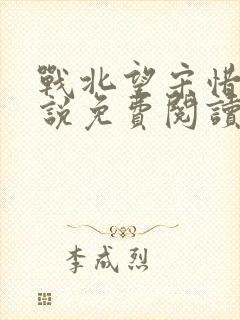 戰北望宋惜
說免費閱讀
李成烈